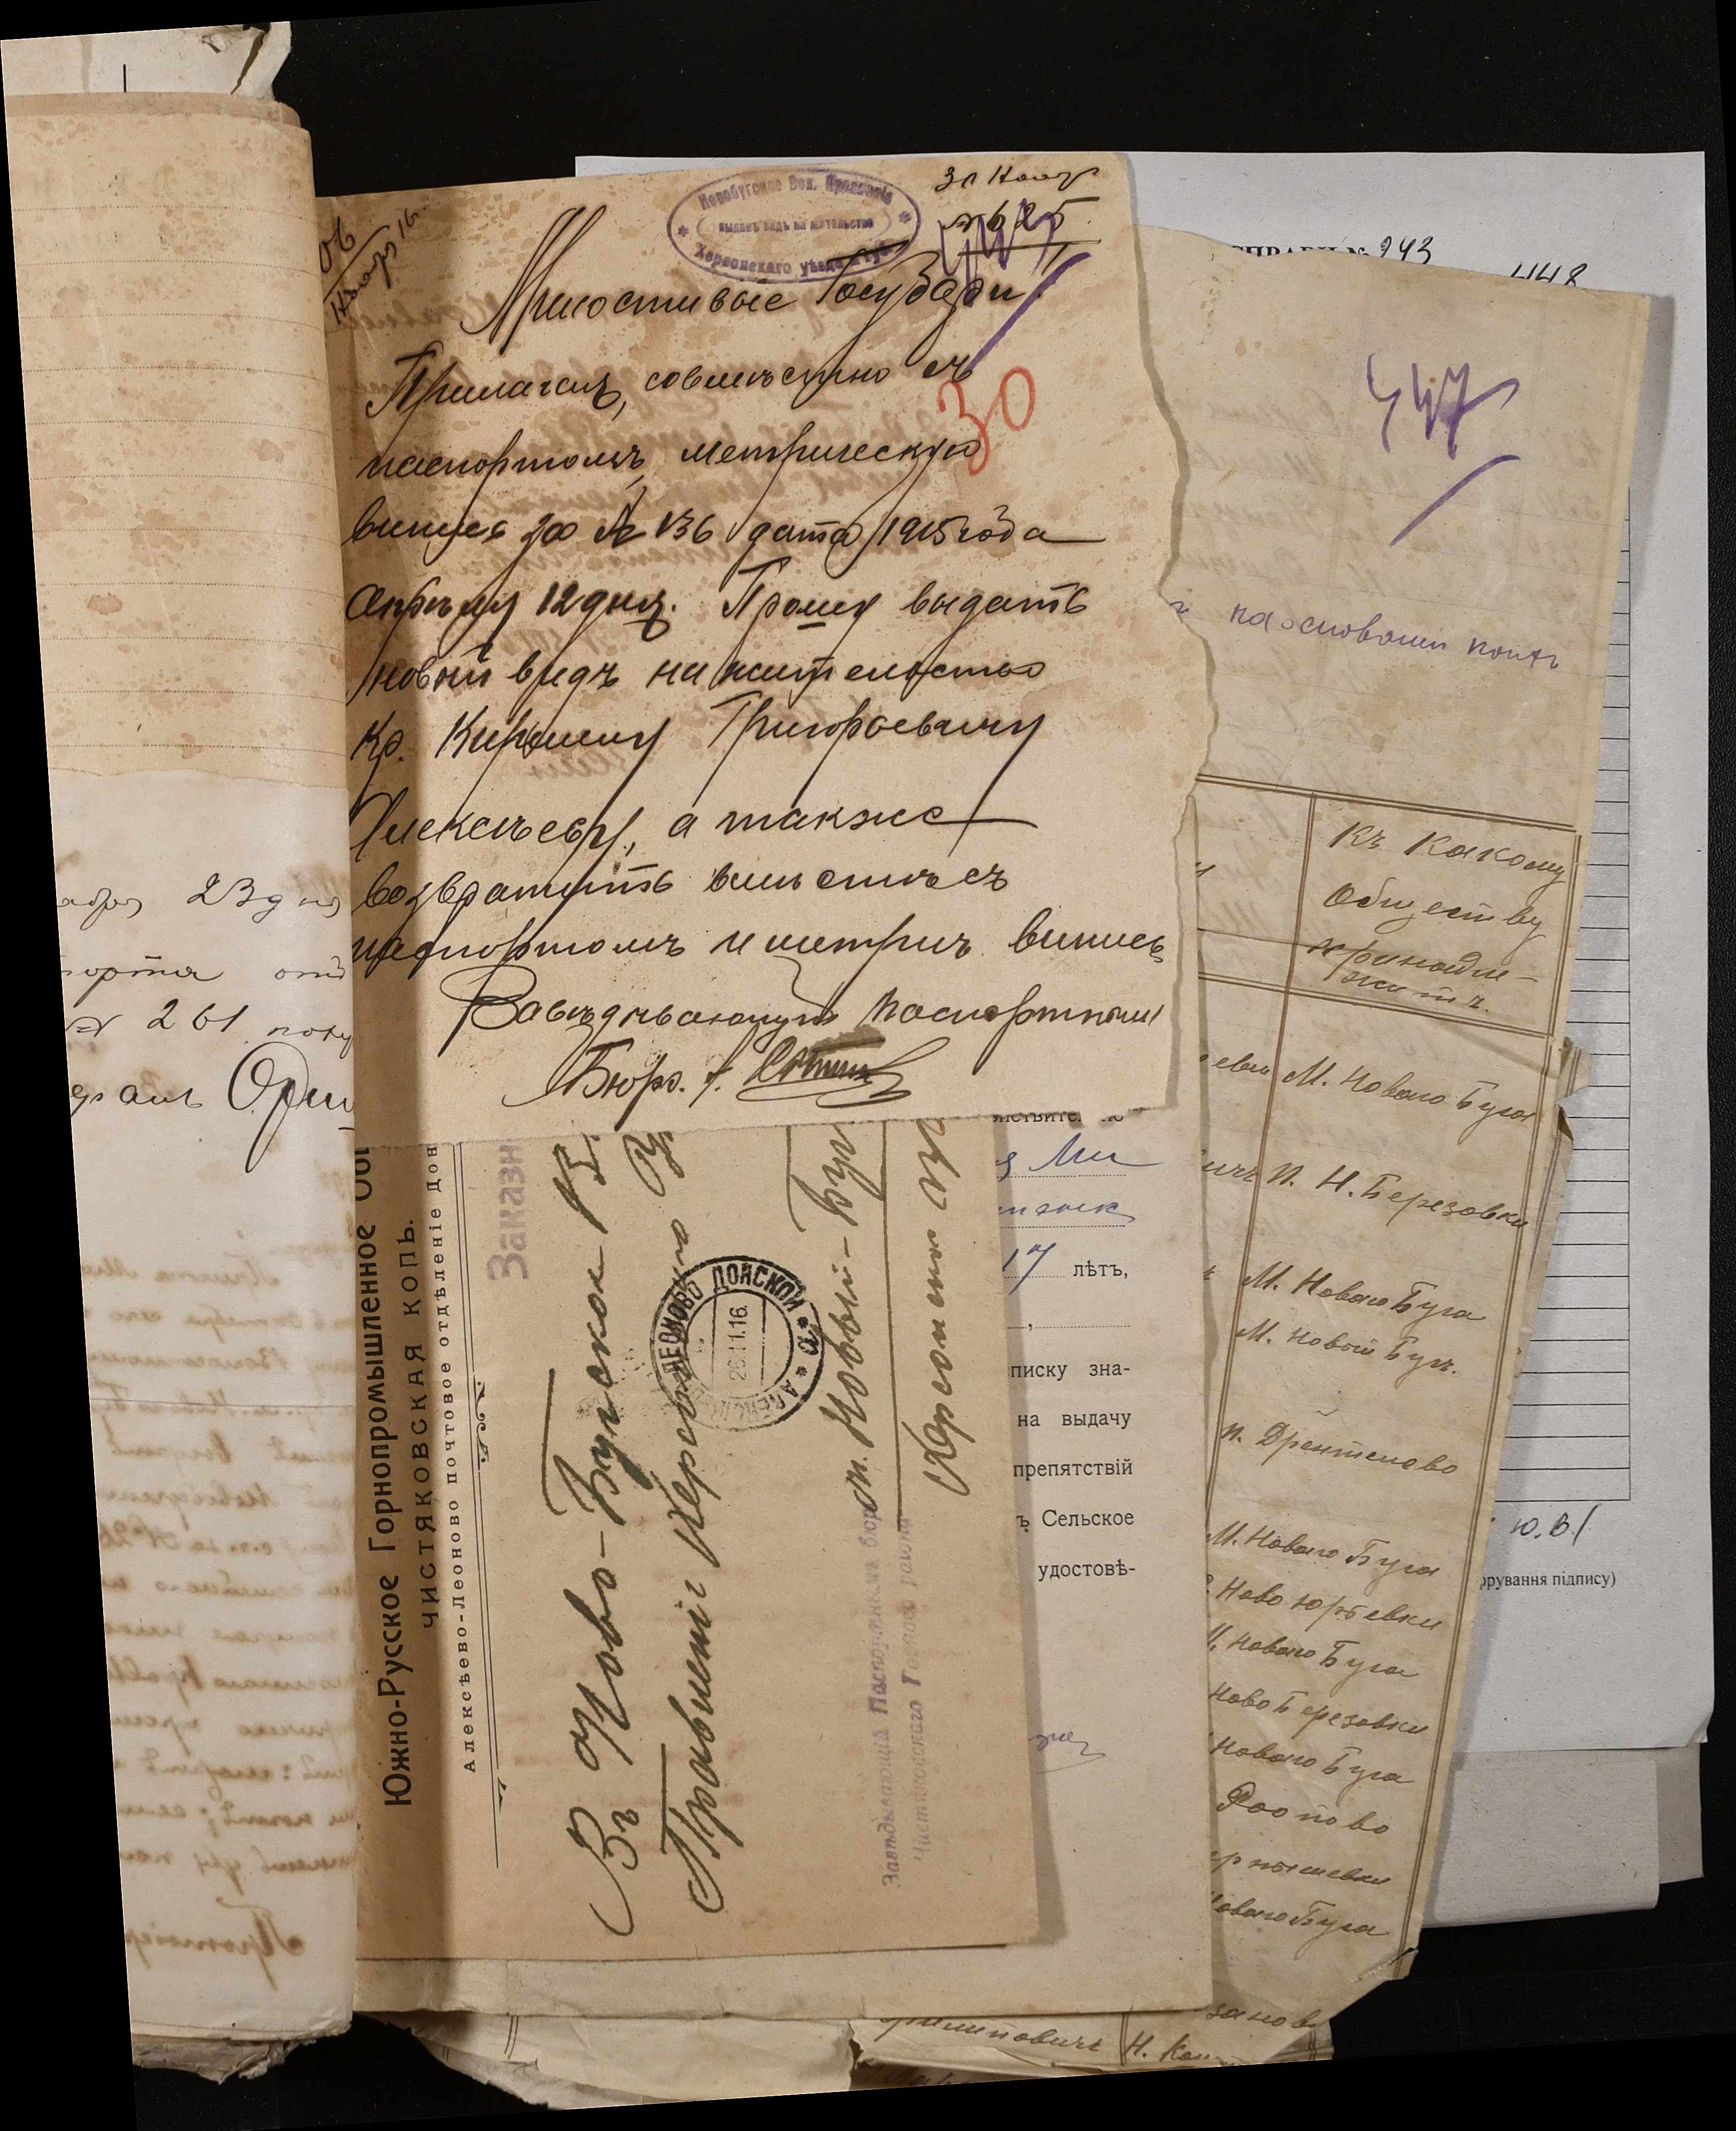 Новобугское Вол. Правленіе
выданъ видъ на жительство
Херсонскаго уѣзда
30 Нояб
№ 625
447
Милостивые Государи!
Прилагая, совмѣстно съ
30
паспортомъ, метрическую
выпись за № 136 дата 1915 года
Апрѣля 12 дня. Прошу выдать
новый видъ на жительство
Кр. Кирьяну Григорьевичу
Алексѣеву, а также
возвратить вмѣстѣ съ
паспортомъ и метрич. выпись
Завѣдывающій Паспортнымъ
Бюро.
Южно-Русское Горнопромышленное Об
ЧИСТЯКОВСКАЯ КОПЬ.
Алексѣево-Леоново почтовое отдѣленіе Дон
Заказн
Въ Ново-Бугское В
Правленіе Херсонскаго У
ЛЕОНОВО ДОНСКОЙ
26.11.16.
п. Новый-Буг
Херсонск
Завѣдывающій Паспортнымъ бюро
Чистяковскаго Горнаго района
23 дня
орта отъ
№ 261
17 лѣтъ,
писку зна-
на выдачу
препятствій
ъ Сельское
удостовѣ-
СПРАВИ № 243
448
447
на основаніи
Къ какому
Обществу
принадле-
житъ.
М. Новаго Буга
п. Н. Березовки
М. Новаго Буга
М. Новый Бугъ.
п. Дрентелово
М. Новаго Буга
Ново Юрьевки
М. Новаго Буга
Ново Березовки
Новаго Буга
оваго Буга
Ю.В./
рування підпису)
илиповичъ